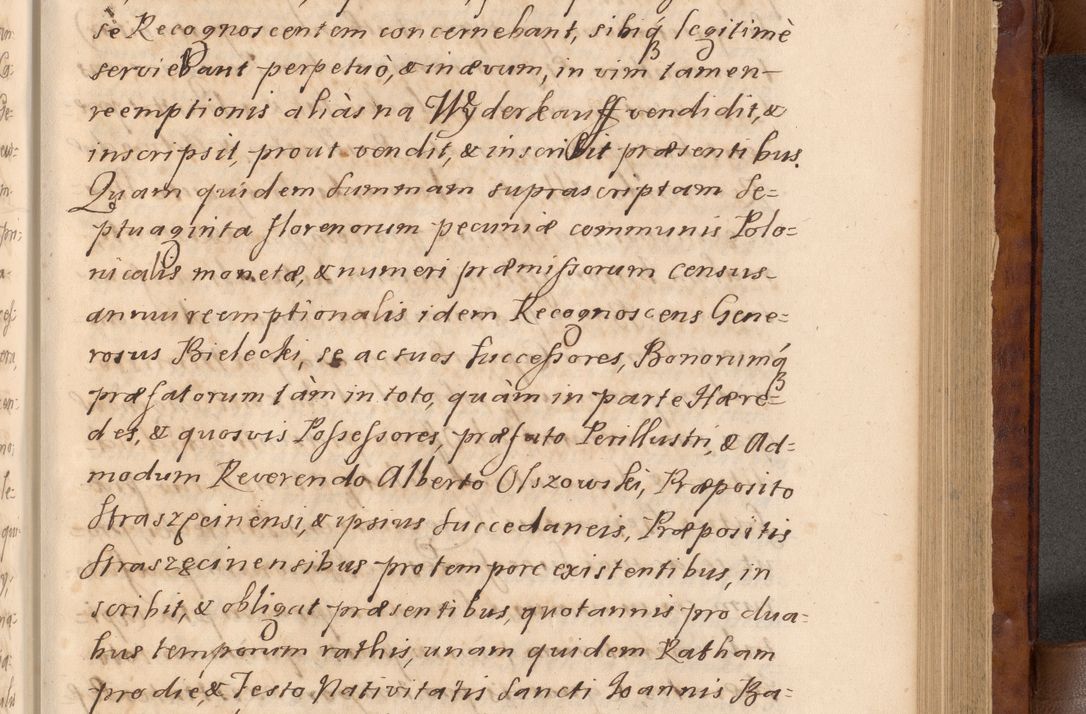 sè Recognoscentem concernebant, sibiq́ꝫ legitimè
serviebant perpetuò, & in ævum, in vim tamen
reemptionis aliàs na Wyderkauff vendidit, &
inscripsit, prout vendit, & inscribit præsentibus.
Quam quidem Summam suprascriptam Se=
ptuaginta florenorum pecuniæ communis Polo=
nicalis monetæ, & numeri præmissorum census
annui reemptionalis idem Recognoscens Gene=
rosus Bielecki, se ac suos Successores, Bonorumq́ꝫ
præfatorum tàm in toto, quàm in parte Hære=
des, & quosvis Possessores, præfato Perillustri, & Ad=
modum Reverendo Alberto Olszowski, Præposito
Straszęcinensi, & ipsius Succedaneis, Præpositis
Straszęcinensibus pro tempore existentibus, in
scribit, & obligat præsentibus, quotannis pro dua=
bus temporum rathis, unam quidem Ratham
pro die, & Festo Nativitatis Sancti Ioannis Ba=